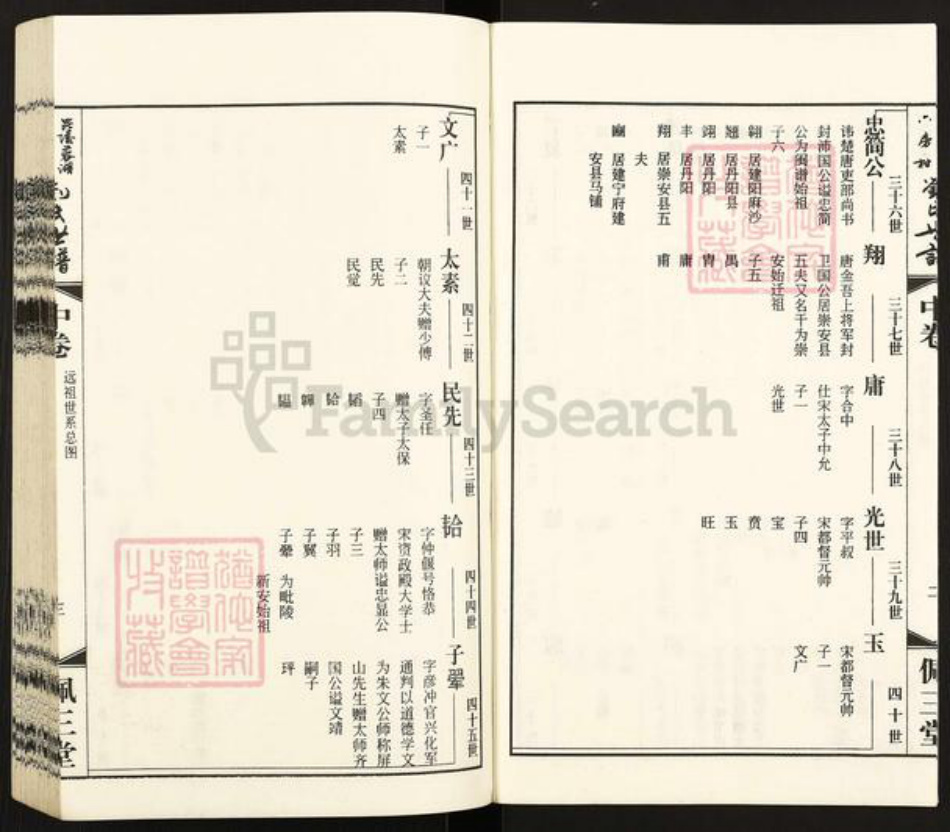 忠简公
三十六世
讳楚唐吏部尚书
封沛国公谥忠简
公为闽谱始祖
子六
翱 居建阳麻沙
翘 居丹阳县
翊 居丹阳
丰 居丹阳
翔 居崇安县五
夫
豳 居建宁府建
安县马铺
翔
三十七世
唐金吾上将军封
卫国公居崇安县
五夫又名干为崇
安始迁祖
子五
禺
胄
庸
甫
庸
三十八世
字合中
仕宋太子中允
子一
光世
光世
三十九世
字平叔
宋都督元帅
子四
宝
贲
玉
旺
玉
四十世
宋都督元帅
子一
文广
中卷
佩三堂
文广
四十一世
子一
太素
太素
四十二世
朝议大夫赠少傅
子二
民先
民觉
民先
四十三世
字圣任
赠太子太保
子四
韬
韐
韠
韫
韐
四十四世
字仲偃号恪恭
宋资政殿大学士
赠太师谥忠显公
子三
子羽
子翼
子翬 为毗陵
新安始祖
子翚
四十五世
字彦冲官兴化军
通判以道德学文
为朱文公师称屏
山先生赠太师齐
国公谥文靖
嗣子
玶
世谱
中卷
远祖世系总图
三
佩三堂
FamilySearch